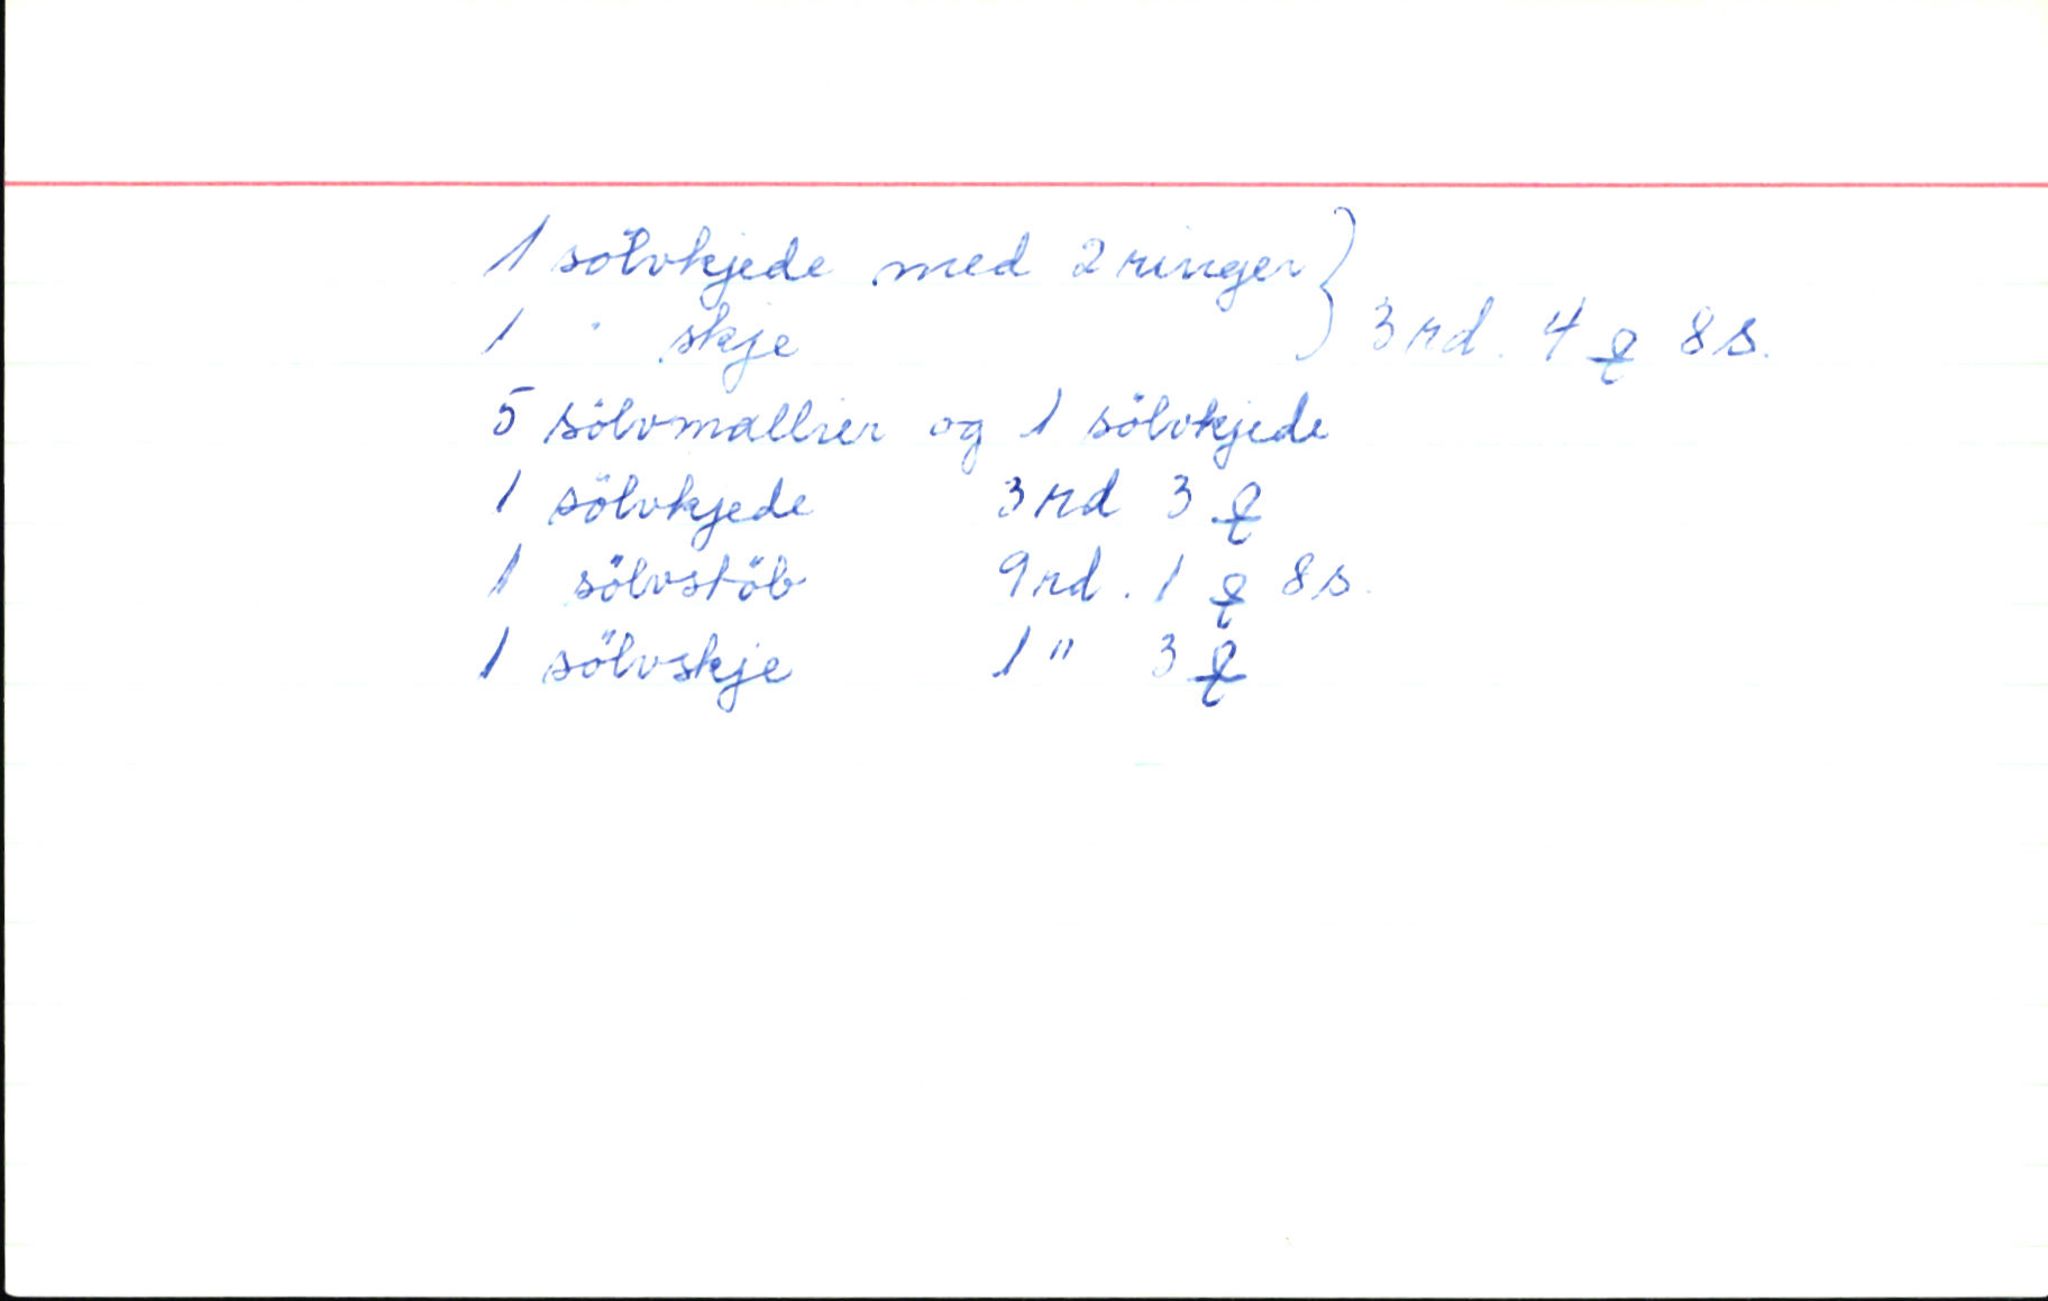 1 sölvkjede med 2 ringer
1 " skje } 3 rd. 4 ꝗ 8 s.
5 sölvmallier og 1 sölvkjede
1 sölvkjede 3 rd 3 ꝗ
1 sölvstöb 9 rd. 1 ꝗ 8 s.
1 sölvskje 1 " 3 ꝗ